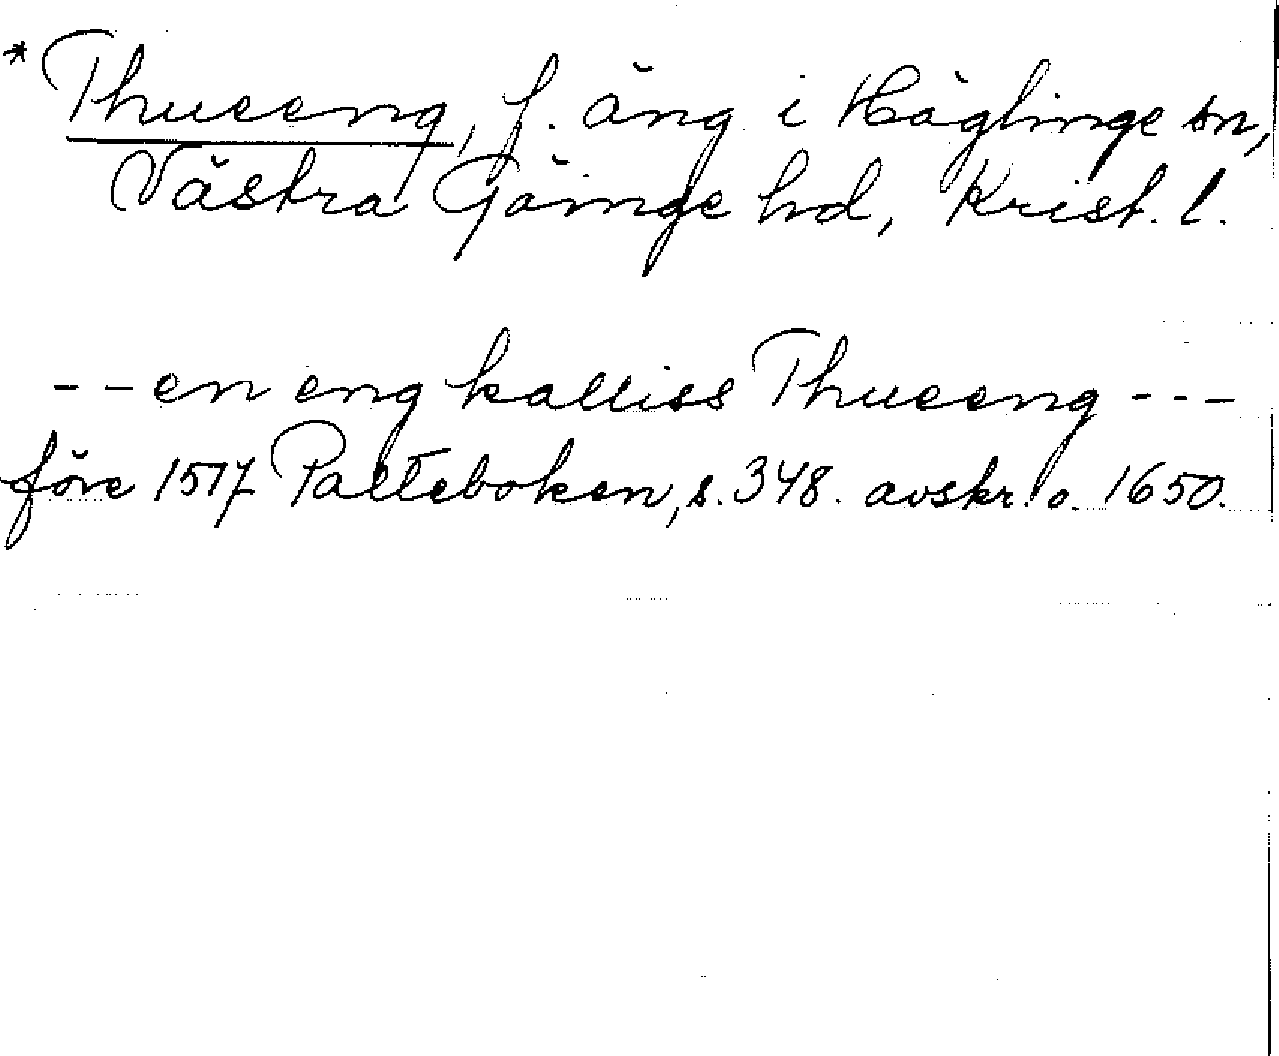 * Thueeng, f. äng i Häglinge sn,
Västra Göinge hd, Krist. l.
- - en eng kalliss Thueeng - - -
före 1517 Palteboken, s. 348. avskr. o. 1650.